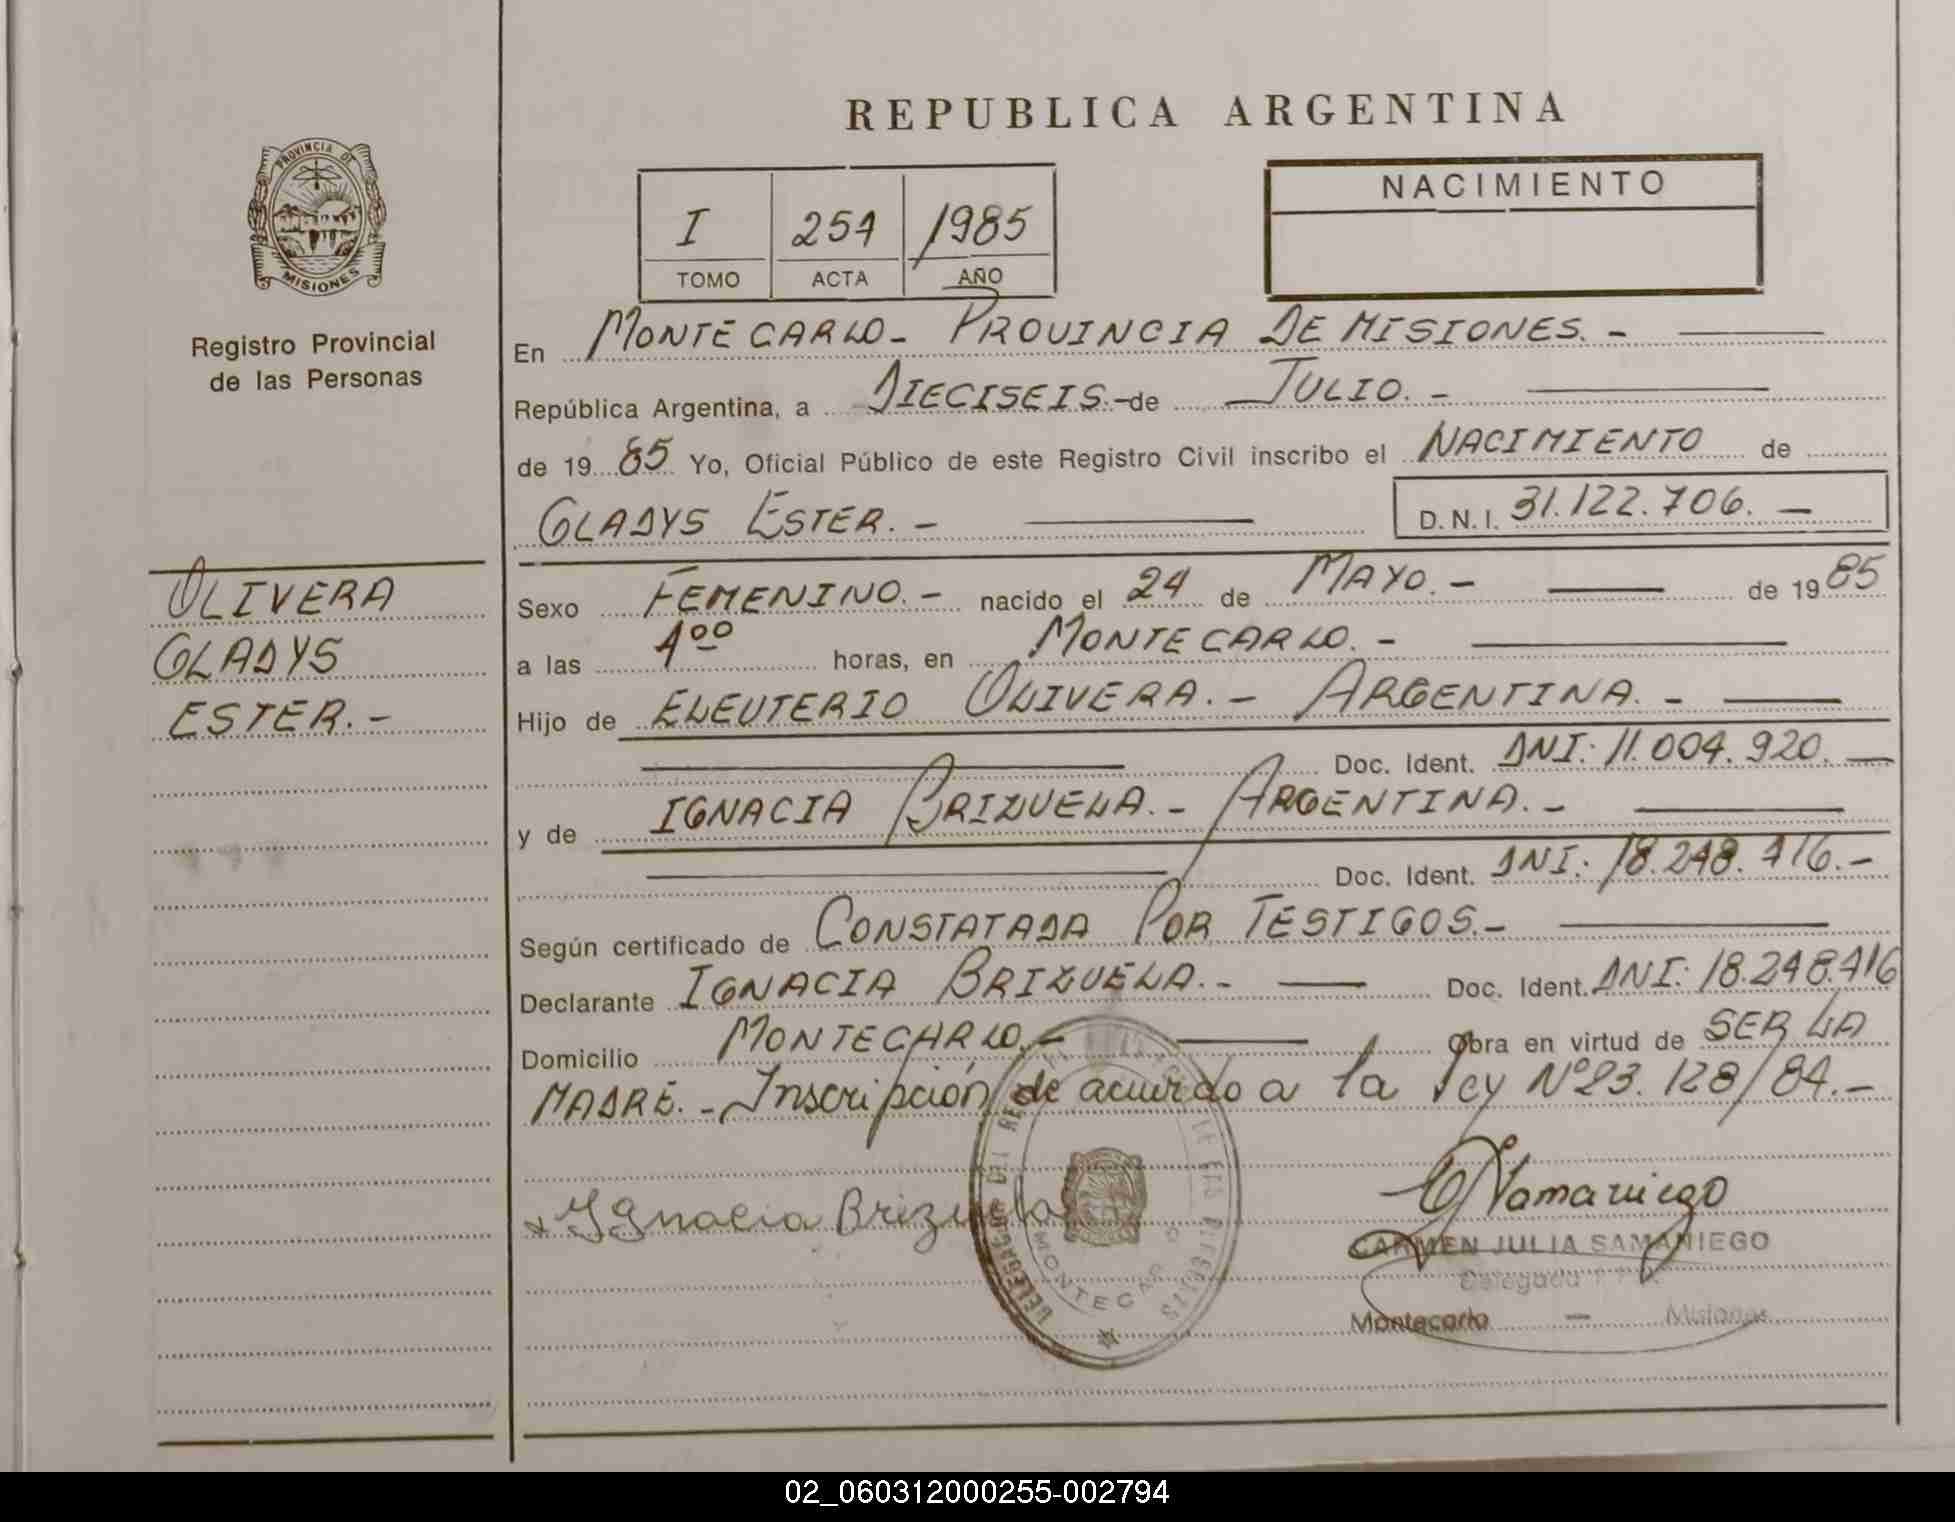 REPUBLICA ARGENTINA
PROVINCIA DE
MISIONES
Registro Provincial
de las Personas
I 254 1985
TOMO ACTA AÑO
NACIMIENTO
En MONTECARLO- PROVINCIA DE MISIONES.-
República Argentina, a DIECISEIS.- de JULIO.-
de 19 85 Yo, Oficial Público de este Registro Civil inscribo el NACIMIENTO de
GLADYS ESTER.- D.N.I. 31.122.706.-
OLIVERA
GLADYS
ESTER.-
Sexo FEMENINO.- nacido el 24 de MAYO.- de 19 85
a las 4ºº horas, en MONTECARLO.-
Hijo de ELEUTERIO OLIVERA.- ARGENTINA.-
Doc. Ident. DNI: 11.004.920.
y de IGNACIA BRIZUELA.- ARGENTINA.-
Doc. Ident. DNI: 18.248.416.-
Según certificado de CONSTATADA POR TESTIGOS.-
Declarante IGNACIA BRIZUELA.- Doc. Ident. DNI: 18.248.416
Domicilio MONTECARLO.- Obra en virtud de SER LA
MADRE.- Inscripción de acuerdo a la ley Nº23.128/84.-
Ignacia Brizuela
MONTECARLO
Samaniego
CARMEN JULIA SAMANIEGO
Delegada
Montecarlo - Misiones
02_060312000255-002794